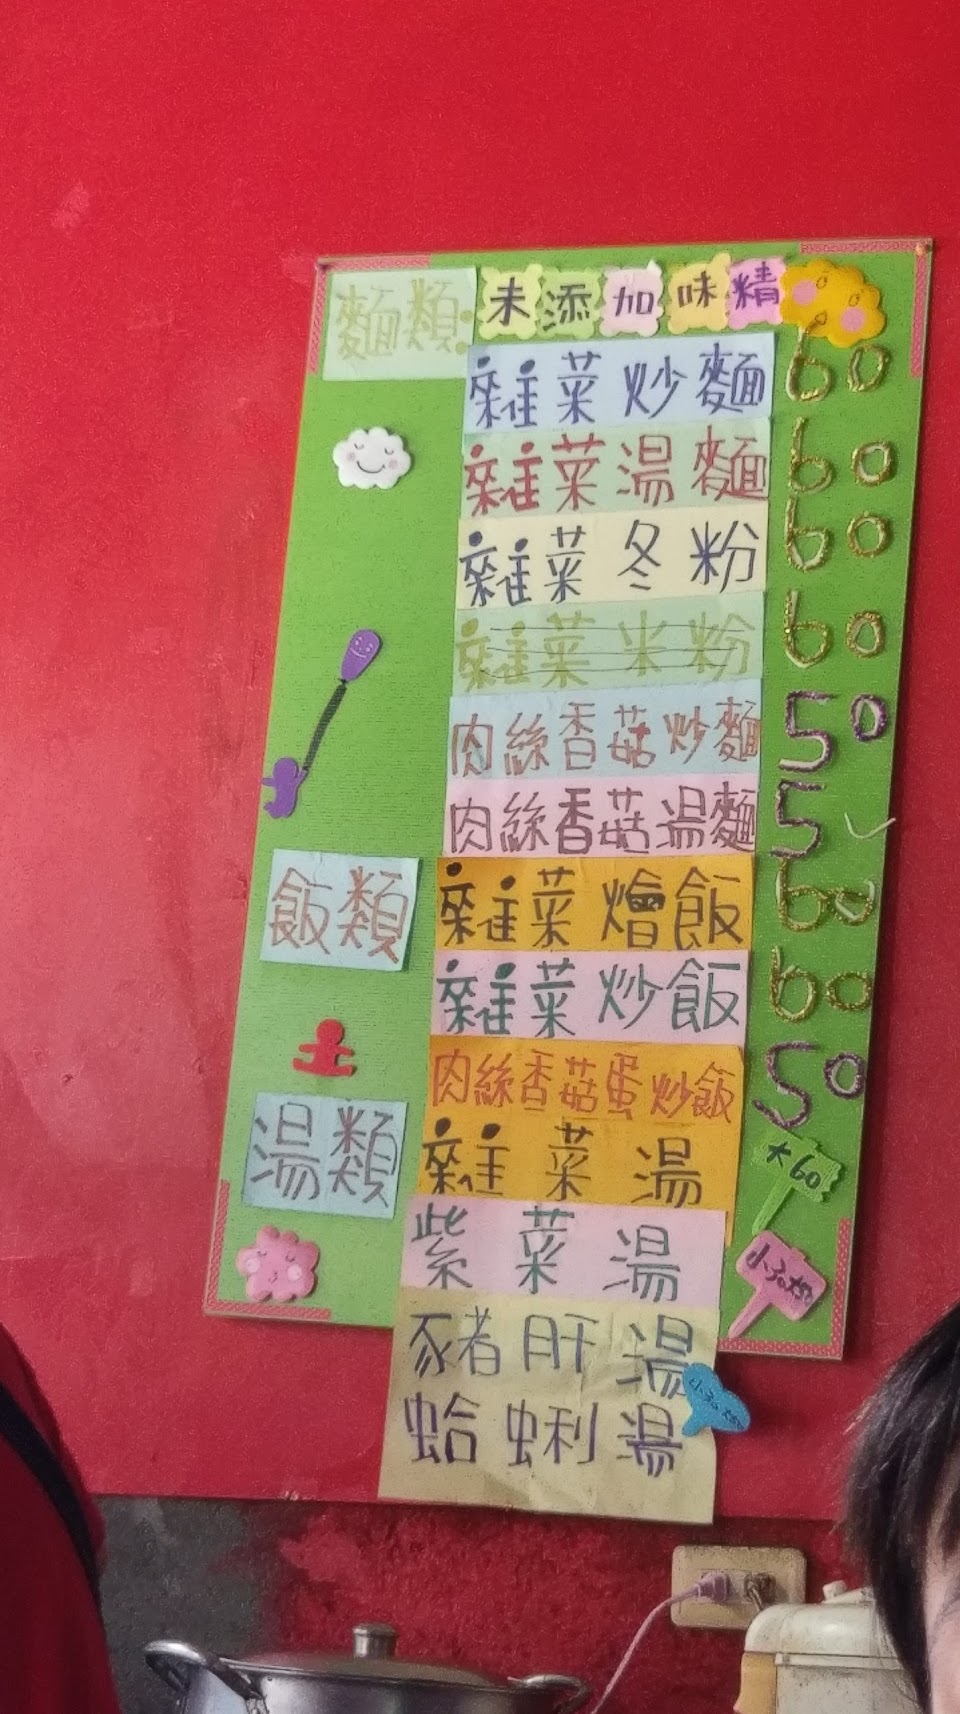 麵類：未添加味精
雜菜炒麵 60
雜菜湯麵 60
雜菜冬粉 60
雜菜米粉 60
肉絲香菇炒麵 50
肉絲香菇湯麵 5
飯類 雜菜燴飯 60
雜菜炒飯 60
肉絲香菇蛋炒飯 50
湯類 雜菜湯 大60
紫菜湯 小30大50
豬肝湯
蛤蜊湯 小30